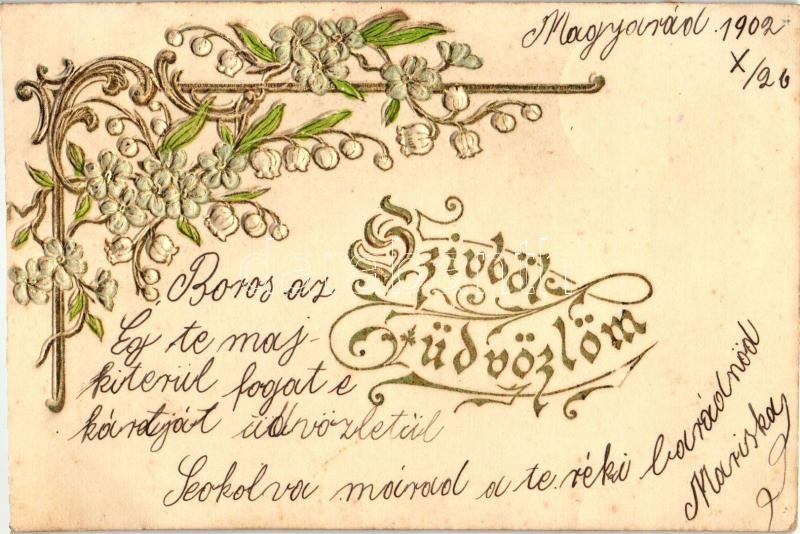 Magyarád 1902
X/26
Szivből
üdvözlöm
Boros az
Ég te maj-
kiterül fogat e
kártját üdvözletül
Seokolva márad a te réki barádnöd
Mariska